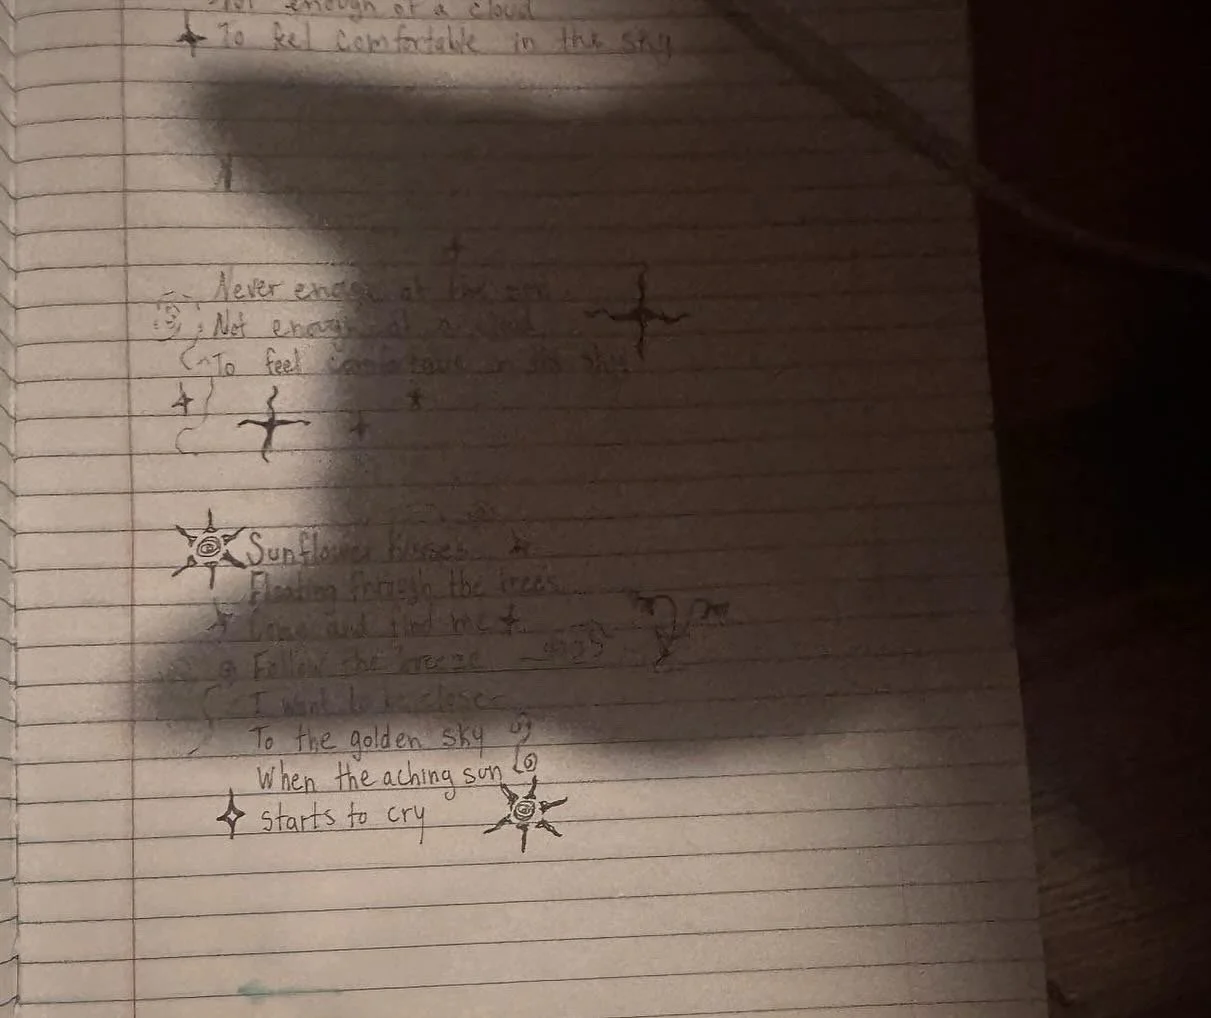 enough of a cloud
To feel comfortable in the sky
Never enough of the
Not enough of a cloud
To feel comfortable in the sky
Sunflower kisses
Floating through the trees
Come and find me
Follow the breeze
I want to be closer
To the golden sky
When the aching sun
starts to cry